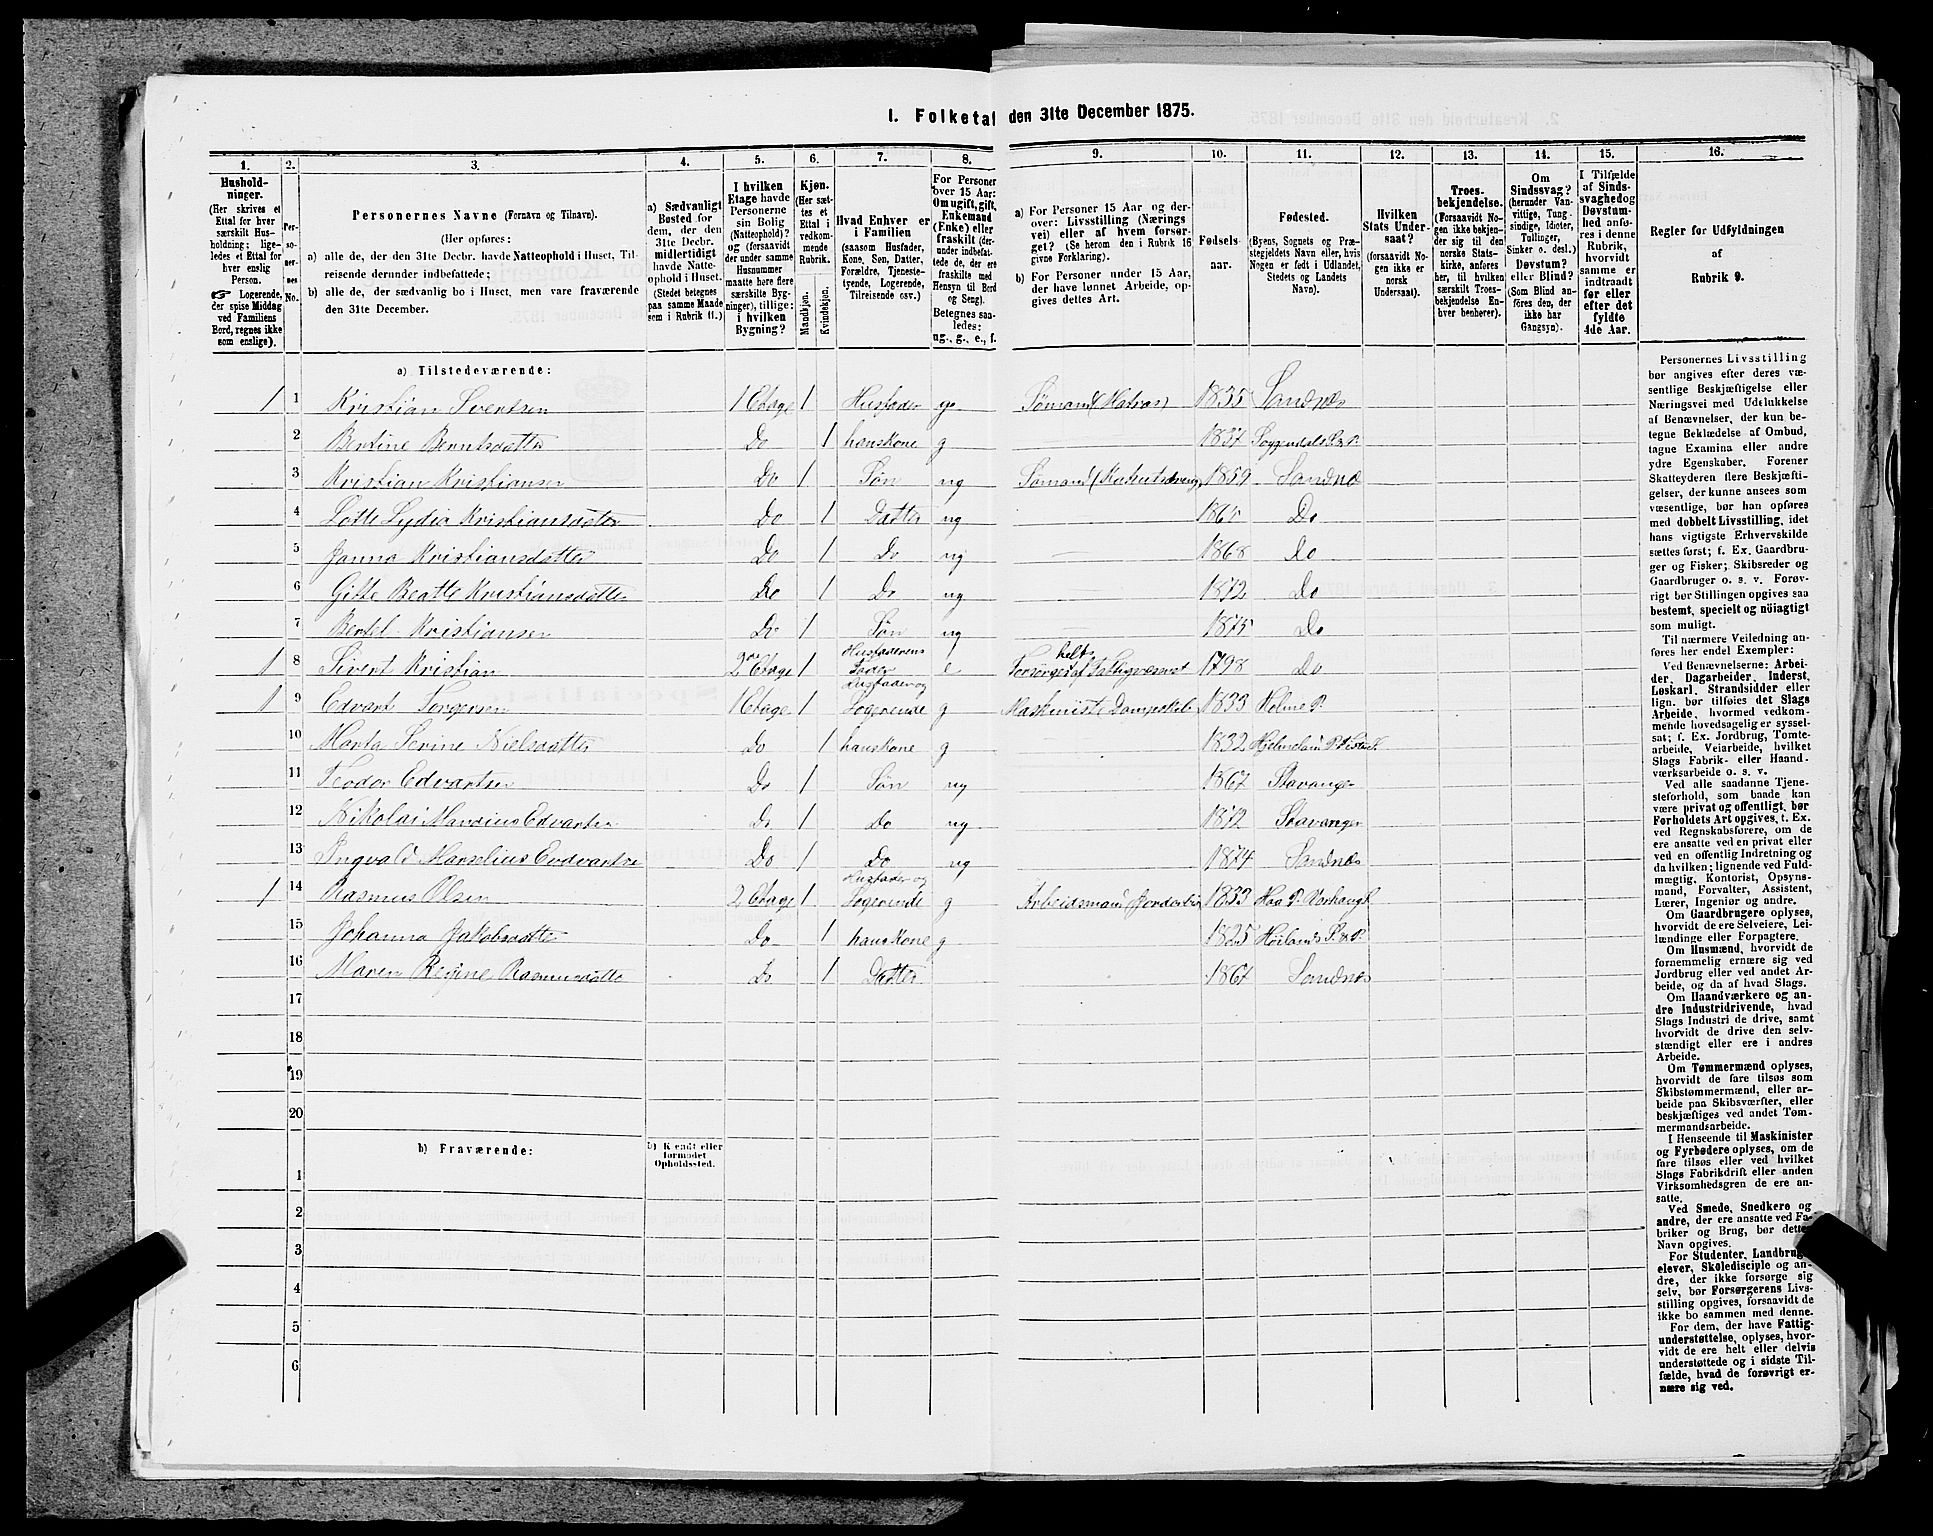 1. Folketal den 31te December 1875.
1. 2. 3. 4. 5. 6. 7. 8. 9. 10. 11. 12. 13. 14. 15. 16.
Hushold-
ninger.
(Her skrives et
Ettal for hver
særskilt Hus-
holdning; lige-
ledes et Ettal for
hver enslig
Person.
☞ Logerende,
der spise Middag
ved Familiens
Bord, regnes ikke
som enslige).
Per-
so-
ner-
nes
No.
Personernes Navne (Fornavn og Tilnavn).
(Her opføres:
a) alle de, der den 31te Decbr. havde Natteophold i Huset, Til-
reisende derunder indbefattede;
b) alle de, der sædvanlig bo i Huset, men vare fraværende
den 31te December.
a) Sædvanligt
Bosted for
dem, der den
31te Decbr.
midlertidigt
havde Natte-
ophold i Huset.
(Stedet betegnes
paa samme Maade
som i Rubrik 11.)
I hvilken
Etage havde
Personerne
sin Bolig
(Natteophold)?
og (forsaavidt
der under samme
Husnummer
maatte høre flere
særskilte Byg-
ninger), tillige:
i hvilken
Bygning?
Kjøn.
(Her sæt-
tes et
Ettal i
vedkom-
mende
Rubrik.
Mandkjøn.
Kvindekjøn.
Hvad Enhver er
i Familien
(saasom Husfader,
Kone, Søn, Datter,
Forældre, Tjeneste-
tyende, Logerende,
Tilreisende osv.)
For Personer
over 15 Aar:
Om ugift, gift,
Enkemand
(Enke) eller
fraskilt (der-
under indbefat-
tede de, der ere
fraskilte med
Hensyn til Bord
og Seng).
Betegnes saa-
ledes:
ug., g., e., f.
a) For Personer 15 Aar og der-
over: Livsstilling (Nærings
vei) eller af hvem forsør-
get? (Se herom den i Rubrik 16
givne Forklaring).
b) For Personer under 15 Aar,
der have lønnet Arbeide, op-
gives dettes Art.
Fødsels-
aar.
Fødested.
(Byens, Sognets og Præ-
stegjeldets Navn eller, hvis
Nogen er født i Udlandet,
Stedets og Landets
Navn).
Hvilken
Stats Under-
saat?
(forsaavidt No-
gen ikke er
norsk
Undersaat).
Troes-
bekjendelse.
(Forsaavidt No-
gen ikke bekjen-
der sig til den
norske Stats-
kirke, anføres
her, til hvilken
særskilt Troes-
bekjendelse En-
hver henhører).
Om
Sindssvag?
(herunder Van-
vittige, Tung-
sindige, Idioter,
Tullinger,
Sinker o. desl.)
Døvstum?
eller Blind?
(Som Blind an-
føres den, der
ikke har
Gangsyn).
I Tilfælde
af Sinds-
svaghed og
Døvstum-
hed anfø-
res i denne
Rubrik,
hvorvidt
samme er
indtraadt
før eller
efter det
fyldte
4de Aar.
Regler for Udfyldningen
af
Rubrik 9.
a) Tilstedeværende:
1 1 Kristian Sivertsen 1 Etage 1 Husfader g 1835 Sandnes
2 Bertine Berntsdatter Do 1 hans kone g 1837 Soggendals S. & P.
3 Kristian Kristiansen Do 1 Søn ug 1859 Sandnes
4 Lotte Lydia Kristiansdatter Do 1 Datter ug Do
5 Janna Kristiansdatter Do 1 Do ug 1868 Do
6 Gitte Beatte Kristiansdatter Do 1 Do ug 1872 Do
7 Bertel Kristiansen Do 1 Søn ug 1875 Do
1 8 Sivert Kristian 2 Etage 1 Husfaderens Fader e Forsørges helt af Fattigvæsnet 1798 Do
1 9 Edvart Torgersen 1 Etage 1 Husfader og Logerende g Maskinist Dampskib 1833 Holme P.
10 Marta Serine Nielsdatter Do 1 hans kone g 1832
11 Teodor Edvartsen Do 1 Søn ug 1867 Stavanger
12 Nikolai Mandius Edvartsen Do 1 Do ug 1872 Stavanger
13 Ingvald Marselius Edvartsen Do 1 Do ug 1874 Sandnes
1 14 Rasmus Olsen 2 Etage 1 Husfader og Logerende g Arbeidsmand 1833 Haa P. Varhaug
15 Johanna Jakobsdatter Do 1 hans kone g 1825 Høilands S. & P.
16 Maren Regine Rasmusdatter Do 1 Datter 1867 Sandnes
17
18
19
20
b) Fraværende:
b) Kjendt eller
formodet
Opholdssted.
1
2
3
4
5
6
Personernes Livsstilling
bør angives efter deres væ-
sentlige Beskjæftigelse eller
Næringsvei med Udelukkelse
af Benævnelser, der kun be-
tegne Beklædelse af Ombud,
tagne Examina eller andre
ydre Egenskaber. Forener
Skatteyderen flere Beskjæfti-
gelser, der kunne ansees som
væsentlige, bør han opføres
med dobbelt Livsstilling, idet
hans vigtigste Erhvervskilde
sættes først; f. Ex. Gaardbru-
ger og Fisker; Skibsreder og
Gaardbruger o. s. v. Forøv-
rigt bør Stillingen opgives saa
bestemt, specielt og nöiagtigt
som muligt.
Til nærmere Veiledning an-
føres her endel Exempler:
Ved Benævnelserne: Arbei-
der, Dagarbeider, Inderst,
Løskarl, Strandsidder eller
lign. bør tilføies det Slags
Arbeide, hvormed vedkom-
mende hovedsagelig er syssel-
sat; f. Ex. Jordbrug, Tomte-
arbeide, Veiarbeide, hvilket
Slags Fabrik- eller Haand-
værksarbeide o. s. v.
Ved alle saadanne Tjene-
steforhold, som baade kan
være privat og offentligt, bør
Forholdets Art opgives, t. Ex.
ved Regnskabsførere, om de
ere ansatte ved en privat eller
ved en offentlig Indretning og
da hvilken; lignende ved Fuld-
mægtig, Kontorist, Opsyns-
mand, Forvalter, Assistent,
Lærer, Ingeniør og andre.
Om Gaardbrugere oplyses,
hvorvidt de ere Selveiere, Lei-
lændinge eller Forpagtere.
Om Husmænd, hvorvidt de
fornemmelig ernære sig ved
Jordbrug eller ved andet Ar-
beide, og da af hvad Slags.
Om Haandværkere og an-
dre Industridrivende, hvad
Slags Industri de drive, samt
hvorvidt de drive den selv-
stændigt eller ere i andres
Arbeide.
Om Tømmermænd oplyses,
hvorvidt de fare tilsøs som
Skibstømmermænd, eller ar-
beide paa Skibsværfter, eller
beskjæftiges ved andet Tøm-
mermandsarbeide.
I Henseende til Maskinister
og Fyrbødere oplyses, om de
fare tilsøs eller ved hvilket
Slags Fabrikdrift eller anden
Virksomhedsgren de ere an-
satte.
Ved Smede, Snedkere og
andre, der ere ansatte ved Fa-
briker og Brug, bør dettes
Navn opgives.
For Studenter, Landbrugs-
elever, Skoledisciple og an-
dre, der ikke forsørge sig
selv, bør Forsørgerens Livs-
stilling opgives, forsaavidt de
ikke bo sammen med denne.
For dem, der have Fattig-
understøttelse, oplyses, hvor-
vidt de ere helt eller delvis
understøttede og i sidste Til-
fælde, hvad de forøvrigt er-
nære sig ved.